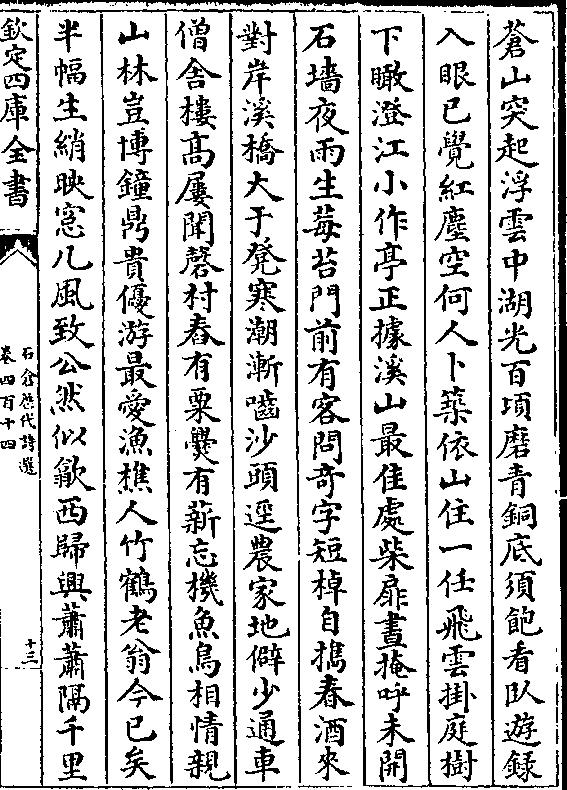 蒼山突起浮雲中湖光百頃磨青銅底須飽看臥遊録
入眼已覺紅塵空何人卜築依山住一任飛雲掛庭樹
下瞰澄江小作亭正據溪山最佳處柴扉晝掩呼未開
石墻夜雨生莓苔門前有客問奇字短棹自攜春酒來
對岸溪橋大于凳寒潮漸嚙沙頭逕農家地僻少通車
僧舍樓髙屢聞磬村舂有粟爨有薪忘機魚鳥相情親
山林豈博鐘鼎貴優游最愛漁樵人竹鶴老翁今已矣
半幅生綃映窓几風致公然似歙西歸興蕭蕭隔千里
欽定四庫全書
石倉歴代詩選
卷四百十四
十三